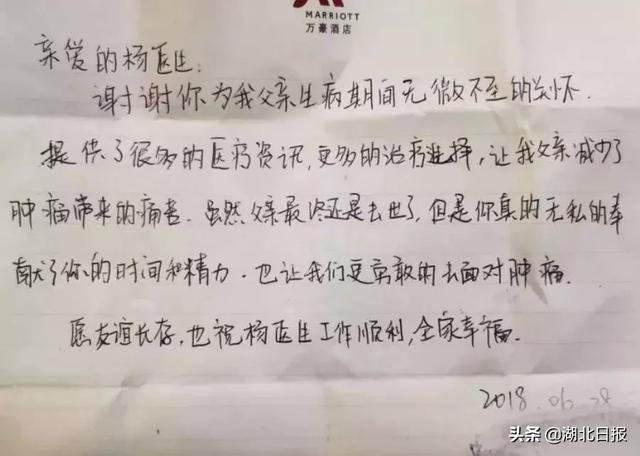 MARRIOTT
万豪酒店
亲爱的杨医生:
谢谢你为我父亲生病期间无微不至的关怀.
提供了很多的医疗资讯,更多的治疗选择,让我父亲减少了
肿瘤带来的痛苦.虽然父亲最终还是去世了,但是你真的无私的奉
献了你的时间和精力.也让我们更勇敢的去面对肿瘤.
愿友谊长存,也祝杨医生工作顺利,全家幸福.
2018.06.28
头条@湖北日报